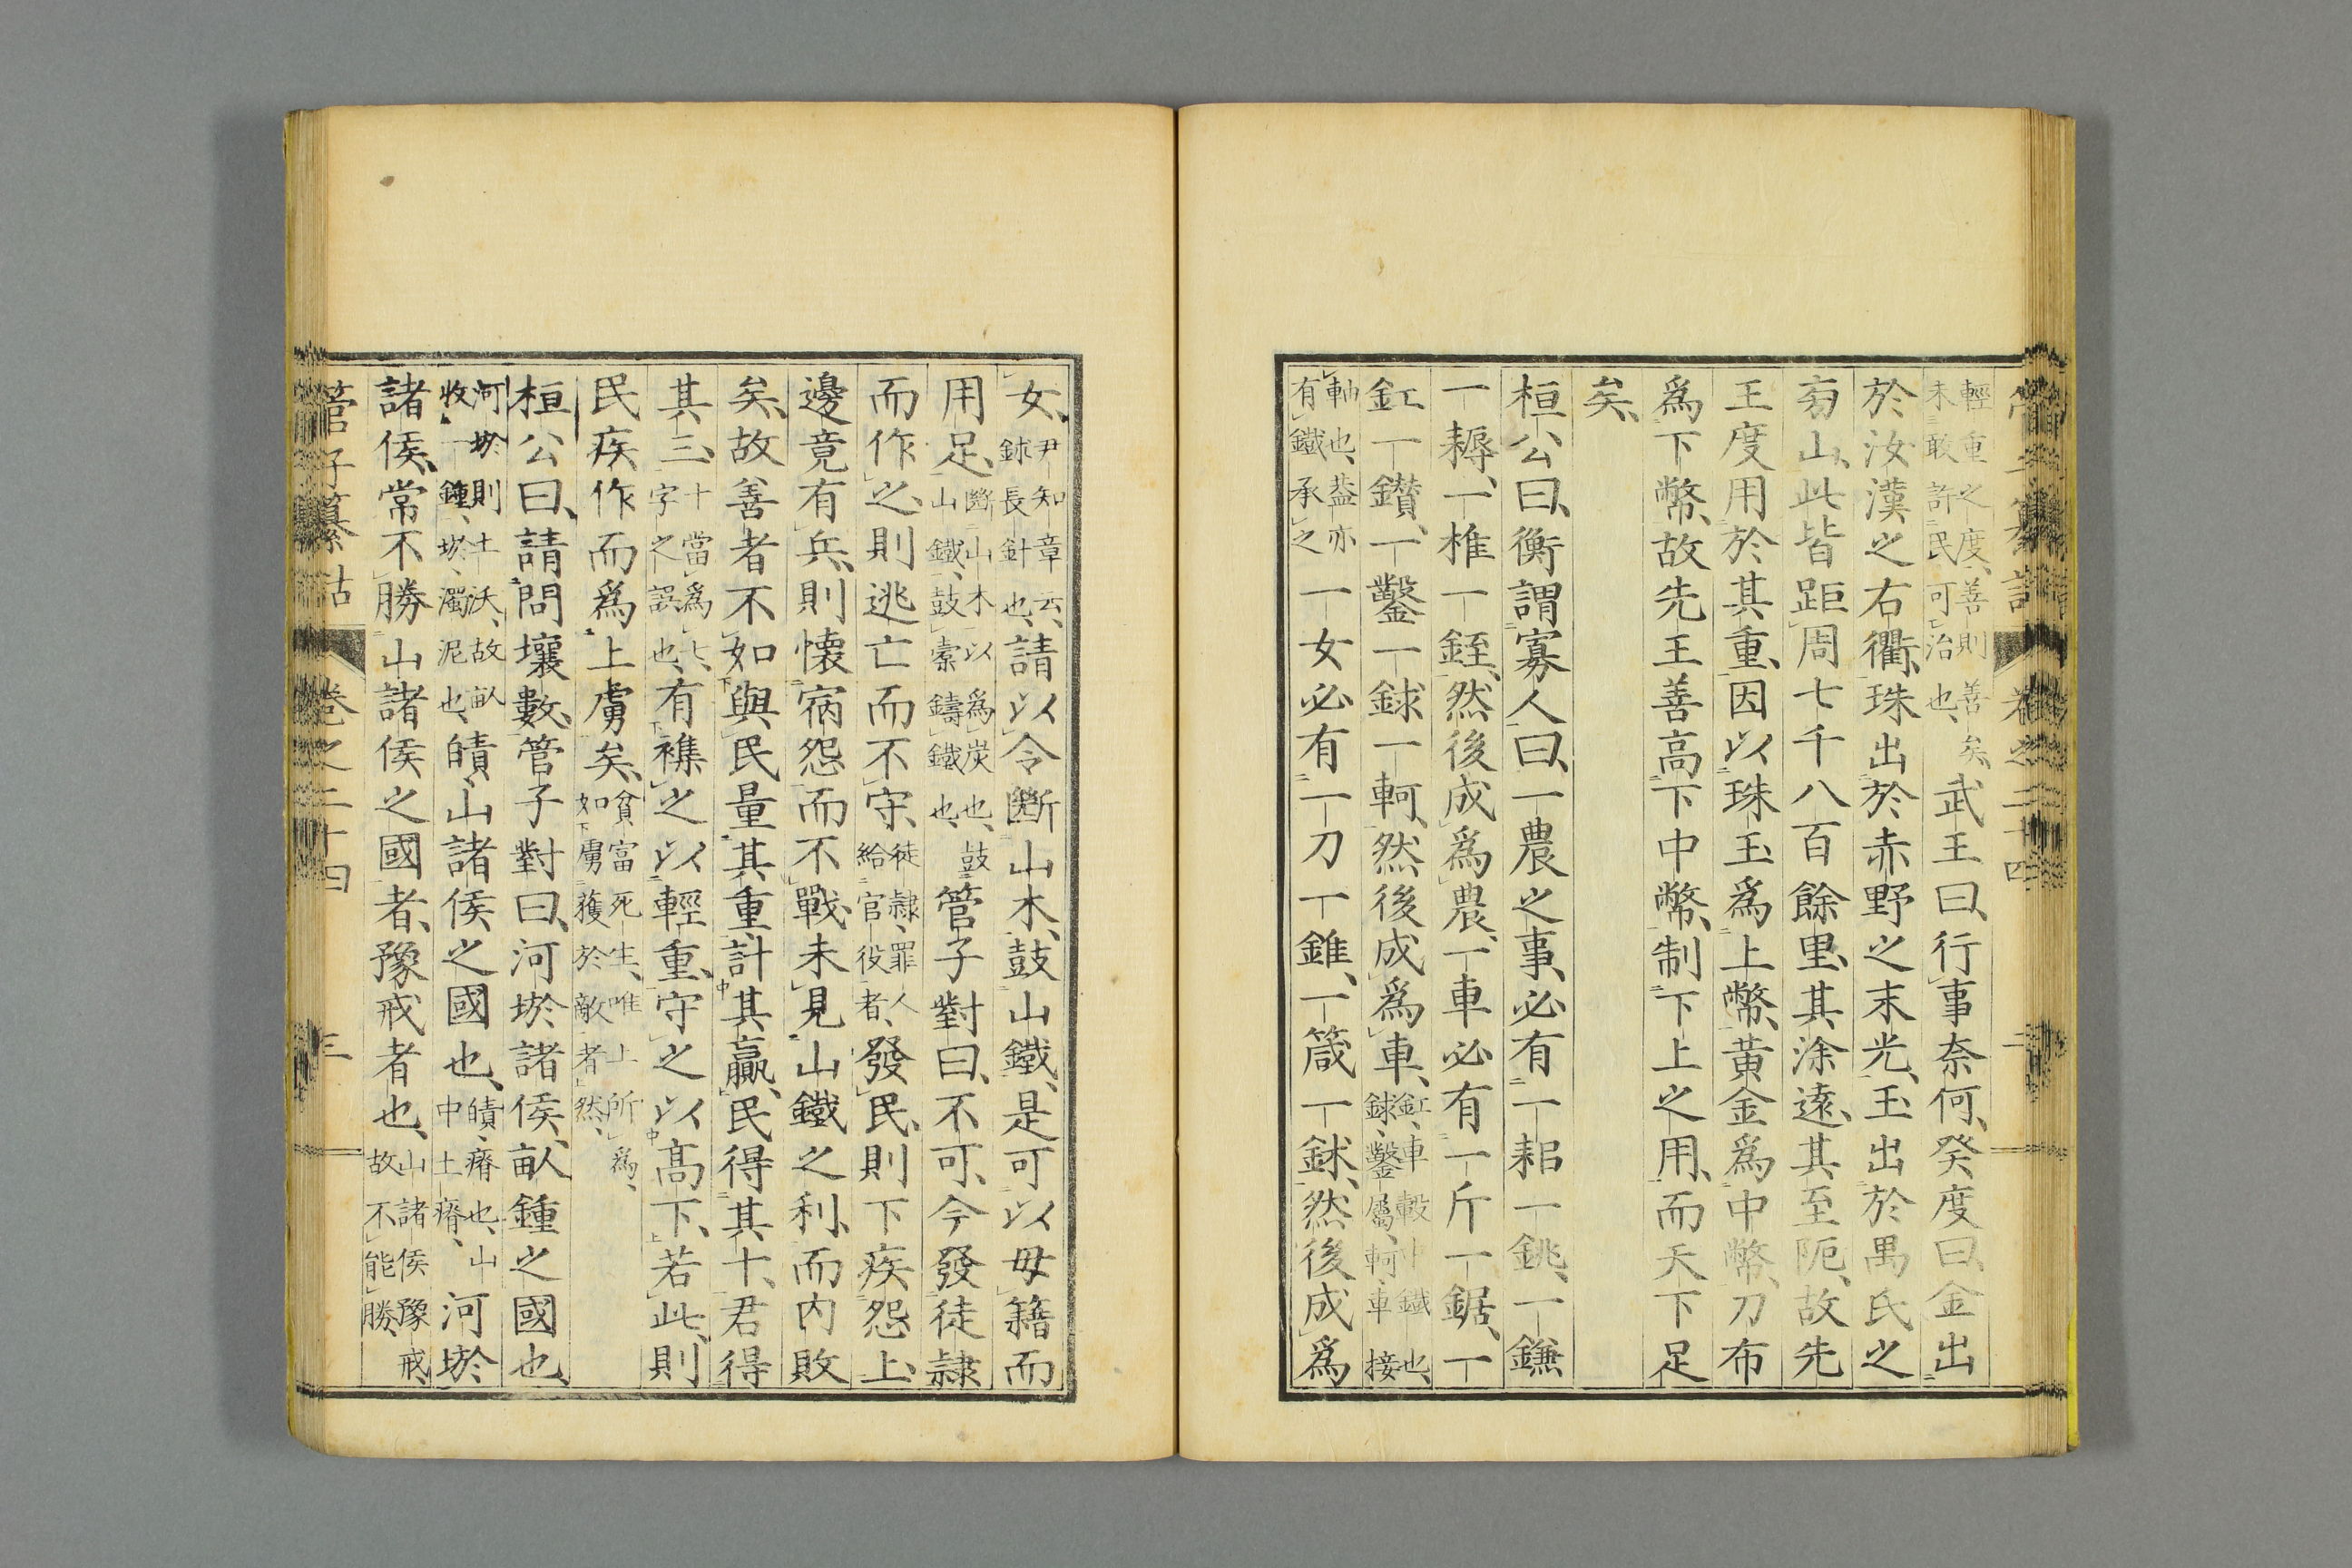 輕重之度、善則善矣、
未敢許民可治也、武王曰、行事奈何、癸度曰、金出
於汝漢之右衢、珠出於赤野之末光、玉出於禺氏之
旁山、此皆距周七千八百餘里、其涂遠、其至阨、故先
王度用於其重、因以珠玉爲上幣、黃金爲中幣、刀布
爲下幣、故先王善高下中幣、制下上之用、而天下足
矣、
桓公曰、衡謂寡人曰、一農之事、必有一耜一銚、一鎌
一耨、一椎一銍、然後成爲農、一車必有一斤一鋸、一
釭一鑽、一鑿一銶一軻、然後成爲車、釭、車轂中鐵也、銶、鑿屬、軻、車接
軸也、蓋亦有鐵承之一女必有一刀一錐、一箴一鉥、然後成爲
女、尹知章云、鉥長針也、請以令斷山木、鼓山鐵、是可以毋籍而
用足、斷山木以爲炭也、鼓山鐵、鼓橐鑄鐵也、管子對曰、不可、今發徒隸
而作之、則逃亡而不守、徒隸、罪人給官役者、發民、則下疾怨上、
邊竟有兵、則懷宿怨而不戰、未見山鐵之利、而内敗
矣、故善者不如與民量其重、計其贏、民得其十、君得
其三、十當爲七、字之誤也、有襍之以輕重、守之以高下、若此、則
民疾作而爲上虜矣、貧富死生、唯上所爲、如虜獲於敵者然、
桓公曰、請問壤數、管子對曰、河埁諸侯、畝鍾之國也、
河埁則土沃、故畝收一鍾、埁、濁泥也、𥐻、山諸侯之國也、𥐻、瘠也、山中土瘠、河埁
諸侯、常不勝山諸侯之國者、豫戒者也、山諸侯豫戒、故不能勝、
管子纂詁
卷之二十四
三